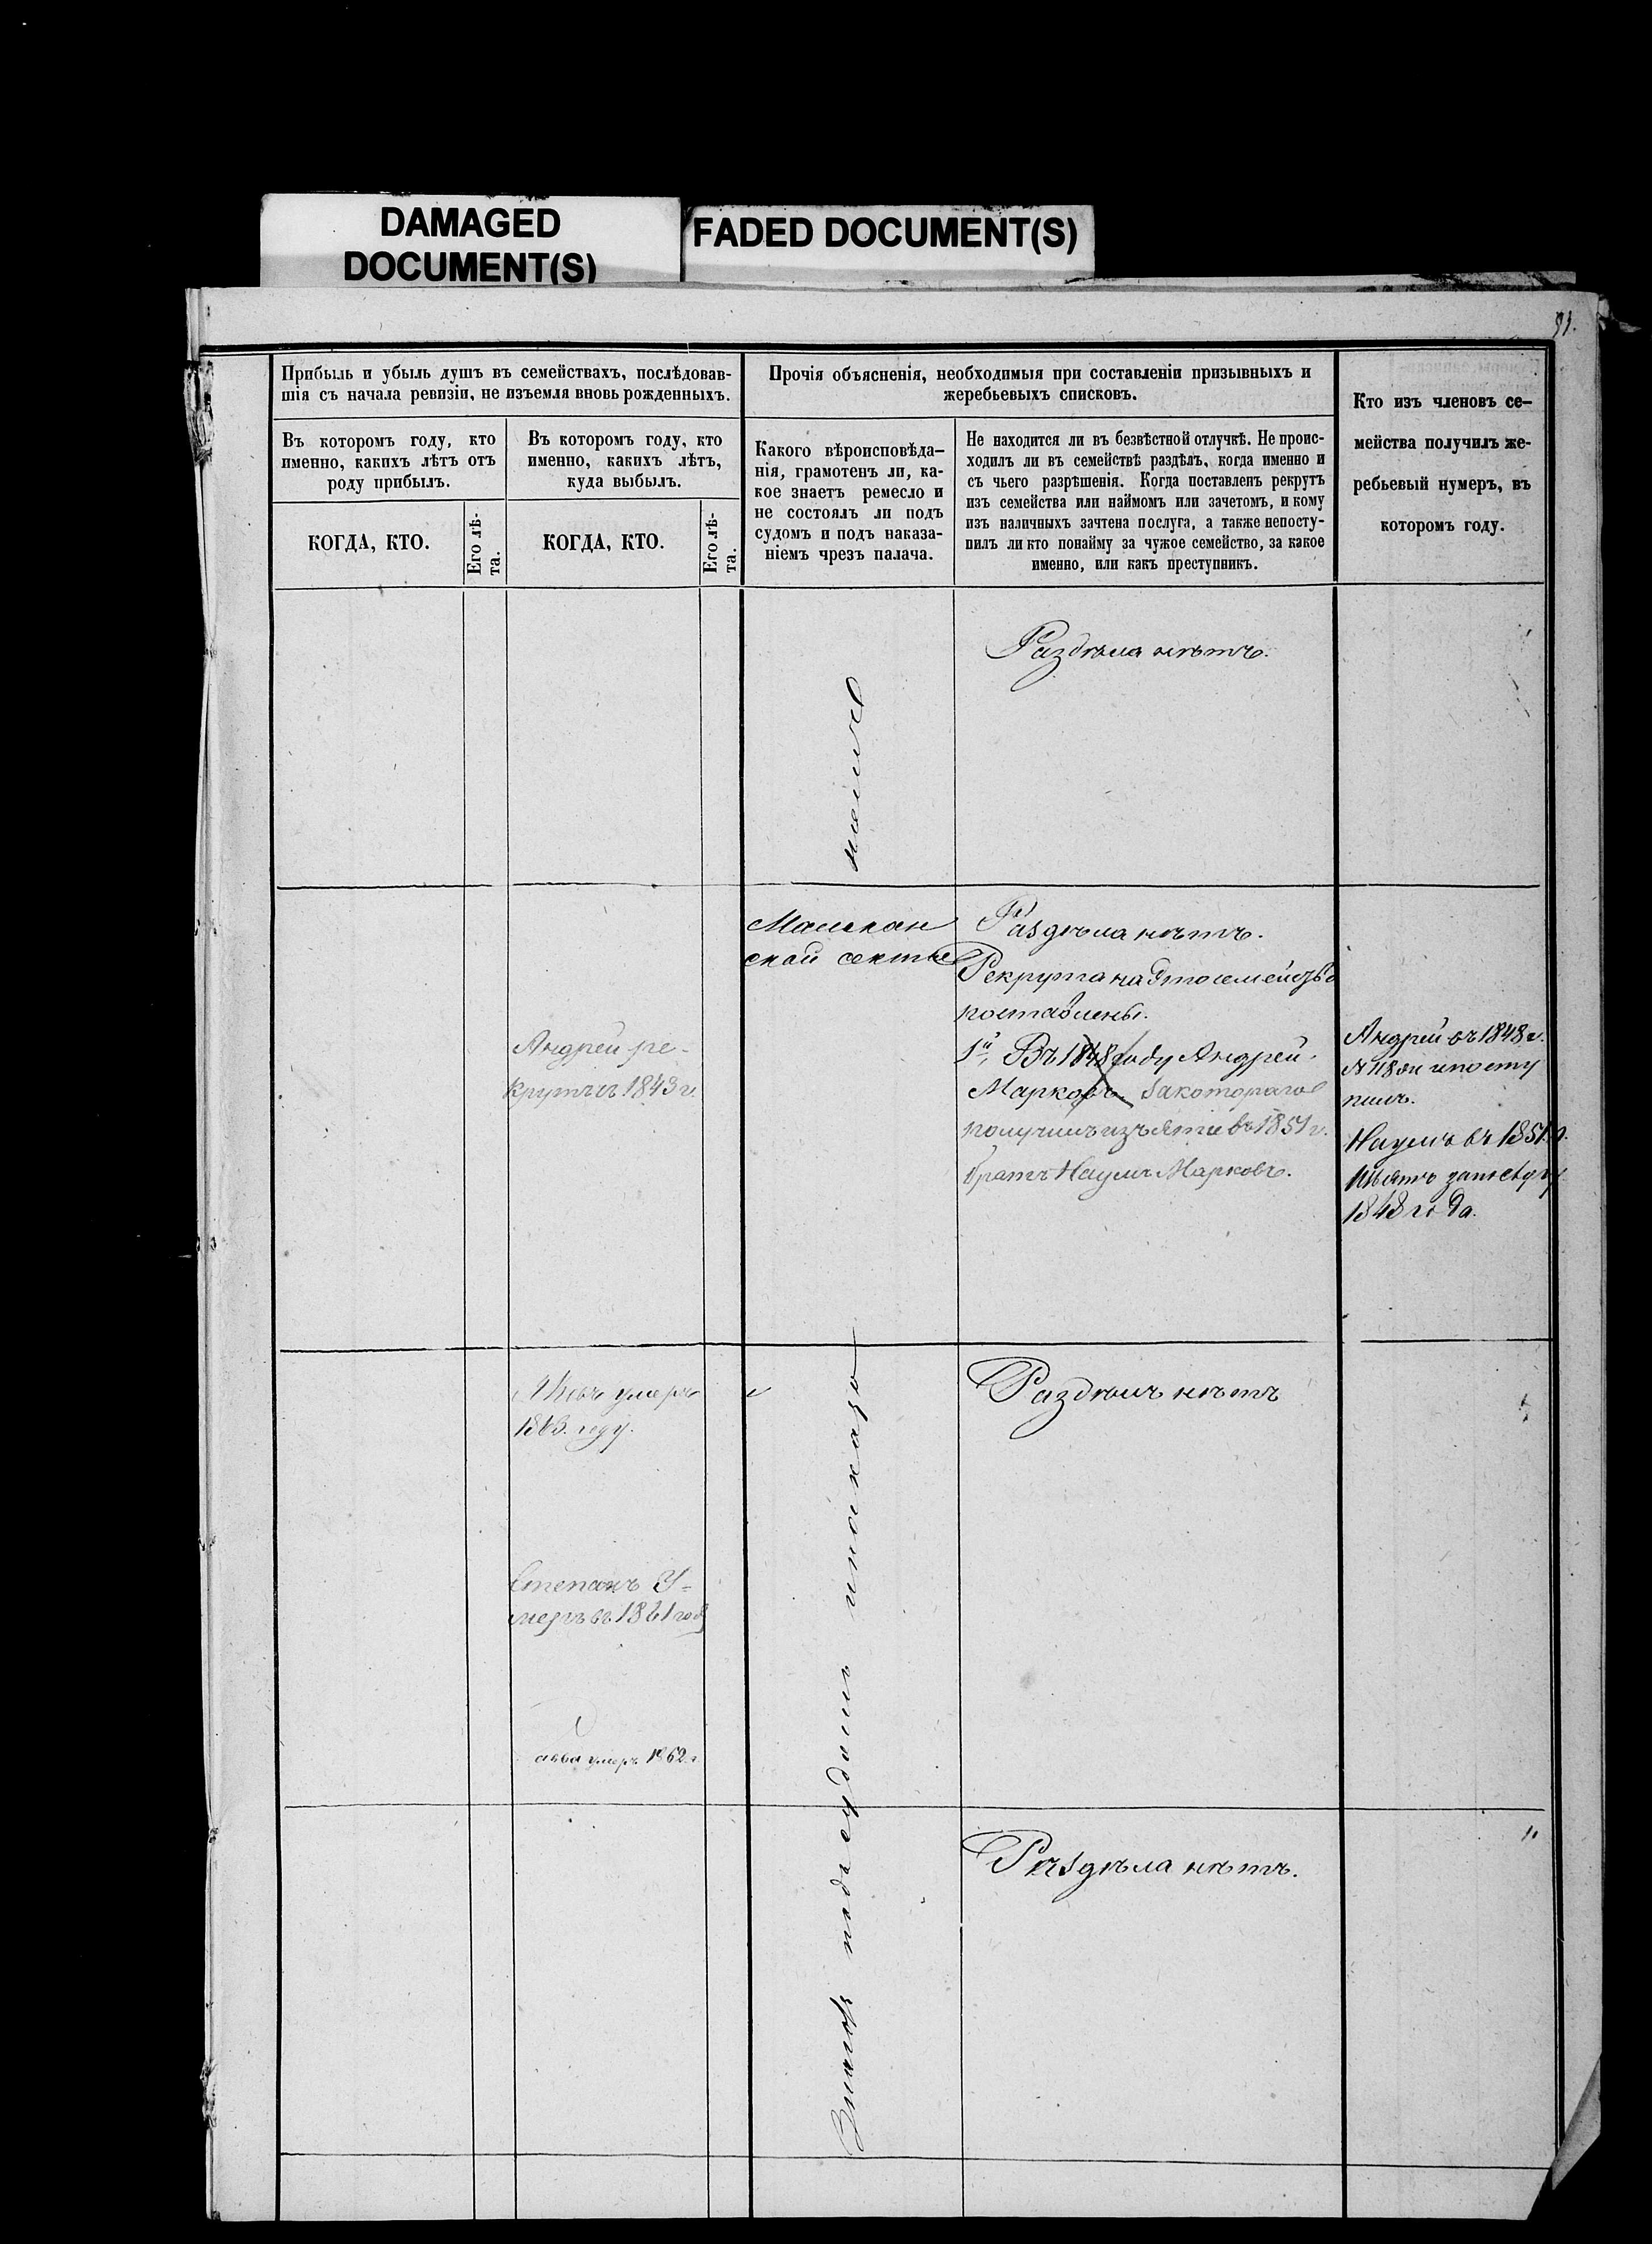 DAMAGED
DOCUMENT(S)
FADED DOCUMENT(S)
91.
Прибыль и убыль душъ въ семействахъ, послѣдовав-
шія съ начала ревизіи, не изъемля вновь рожденныхъ.
Въ которомъ году, кто
именно, какихъ лѣтъ отъ
роду прибылъ.
КОГДА, КТО.
Его лѣ-
та.
Въ которомъ году, кто
именно, какихъ лѣтъ,
куда выбылъ.
КОГДА, КТО.
Его лѣ-
та.
Прочія объясненія, необходимыя при составленіи призывныхъ и
жеребьевыхъ списковъ.
Какого вѣроисповѣда-
нія, грамотенъ ли, ка-
кое знаетъ ремесло и
не состоялъ ли подъ
судомъ и подъ наказа-
ніемъ чрезъ палача.
Не находится ли въ безвѣстной отлучкѣ. Не проис-
ходилъ ли въ семействѣ раздѣлъ, когда именно и
съ чьего разрѣшенія. Когда поставленъ рекрутъ
изъ семейства или наймомъ или зачетомъ, и кому
изъ наличныхъ зачтена послуга, а также непосту-
пилъ ли кто понайму за чужое семейство, за какое
именно, или какъ преступникъ.
Кто изъ членовъ се-
мейства получилъ же-
ребьевый нумеръ, въ
которомъ году.
Раздѣла нѣтъ.
Малакан
скай секты
Раздѣла нѣтъ.
Рекрута на это семейство
поставлены.
1й, Въ 1848 году Андрей
Марковъ. За котораго
получилъ изъятіе въ 1851 г.
братъ Наумъ Марковъ.
Андрей ре-
крутъ въ 1848 г.
Андрей въ 1848 г.
№ 118 и посту
пилъ.
Наумъ въ 1851 г.
1848 года.
умеръ
1863. году.
Раздѣлъ нѣтъ
Степанъ У-
меръ въ 1861 году
умеръ 1862 г.
Раздѣла нѣтъ.
подъ судомъ